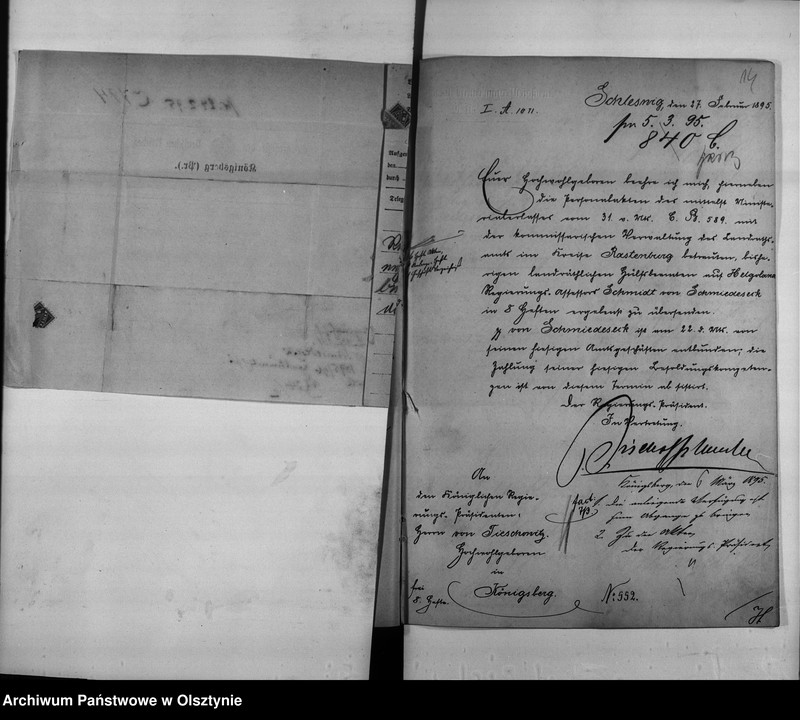 14
I. A. 1011.
Schleswig, den 27. Februar 1895.
pr. 5. 3. 95.
840 C.
Euer Hochwohlgeboren beehre ich mich hierneben
die Personalakten des mittelst Ministe-
rialerlasses vom 31. v. Mts. C. B. 589. mit
der kommissarischen Verwaltung des Landraths-
amts im Kreise Rastenburg betrauten, bishe-
rigen landräthlichen Hülfsbeamten auf Helgoland
Regierungs-Assessors Schmidt von Schmiedeseck
in 8 Heften ergebenst zu übersenden.
p von Schmiedeseck ist am 22. d. Mts. von
seinen hiesigen Amtsgeschäften entbunden, die
Zahlung seiner hiesigen Besoldungskompeten-
zen ist von diesem Termin ab sistirt.
Der Regierungs-Präsident.
In Vertretung.
An
den Königlichen Regie-
rungs-Präsidenten
Herrn von Tieschowitz
Hochwohlgeboren
in
Königsberg.
8. Hefte.
Königsberg, den 6 März 1895.
1. Die anliegende Verfügung ist
zu bringen
2. Zu den Akten
Der Regierungs-Präsident
N: 552.
Königsberg (Pr.)
Archiwum Państwowe w Olsztynie